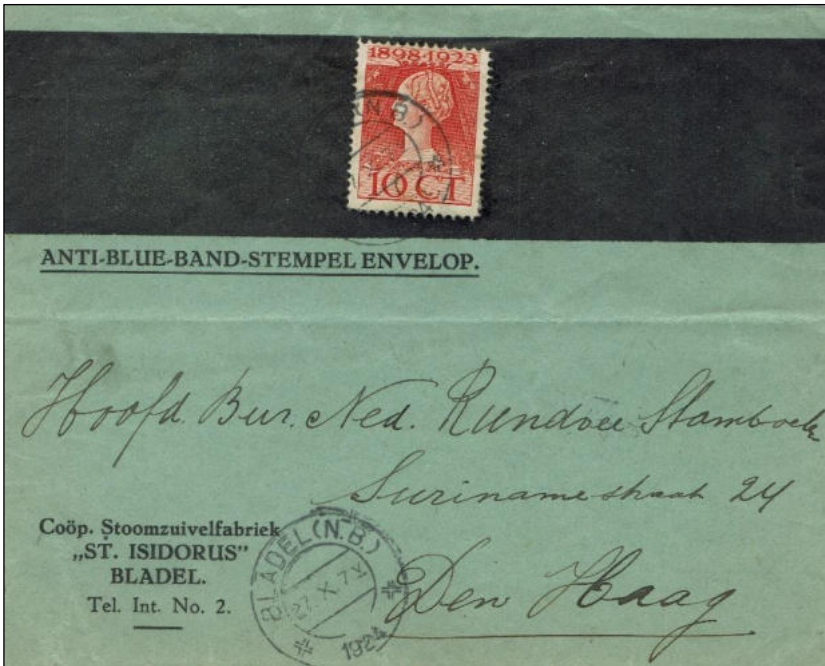 1898-1923
(N.B.)
10 CT
ANTI-BLUE-BAND-STEMPEL ENVELOP.
Hoofd. Bur. Ned. Rundvee Stamboek
Surinamestraat 24
Den Haag
Coöp. Stoomzuivelfabriek
„ST. ISIDORUS”
BLADEL.
Tel. Int. No. 2.
BLADEL (N.B.)
27 X. 7 V
1924